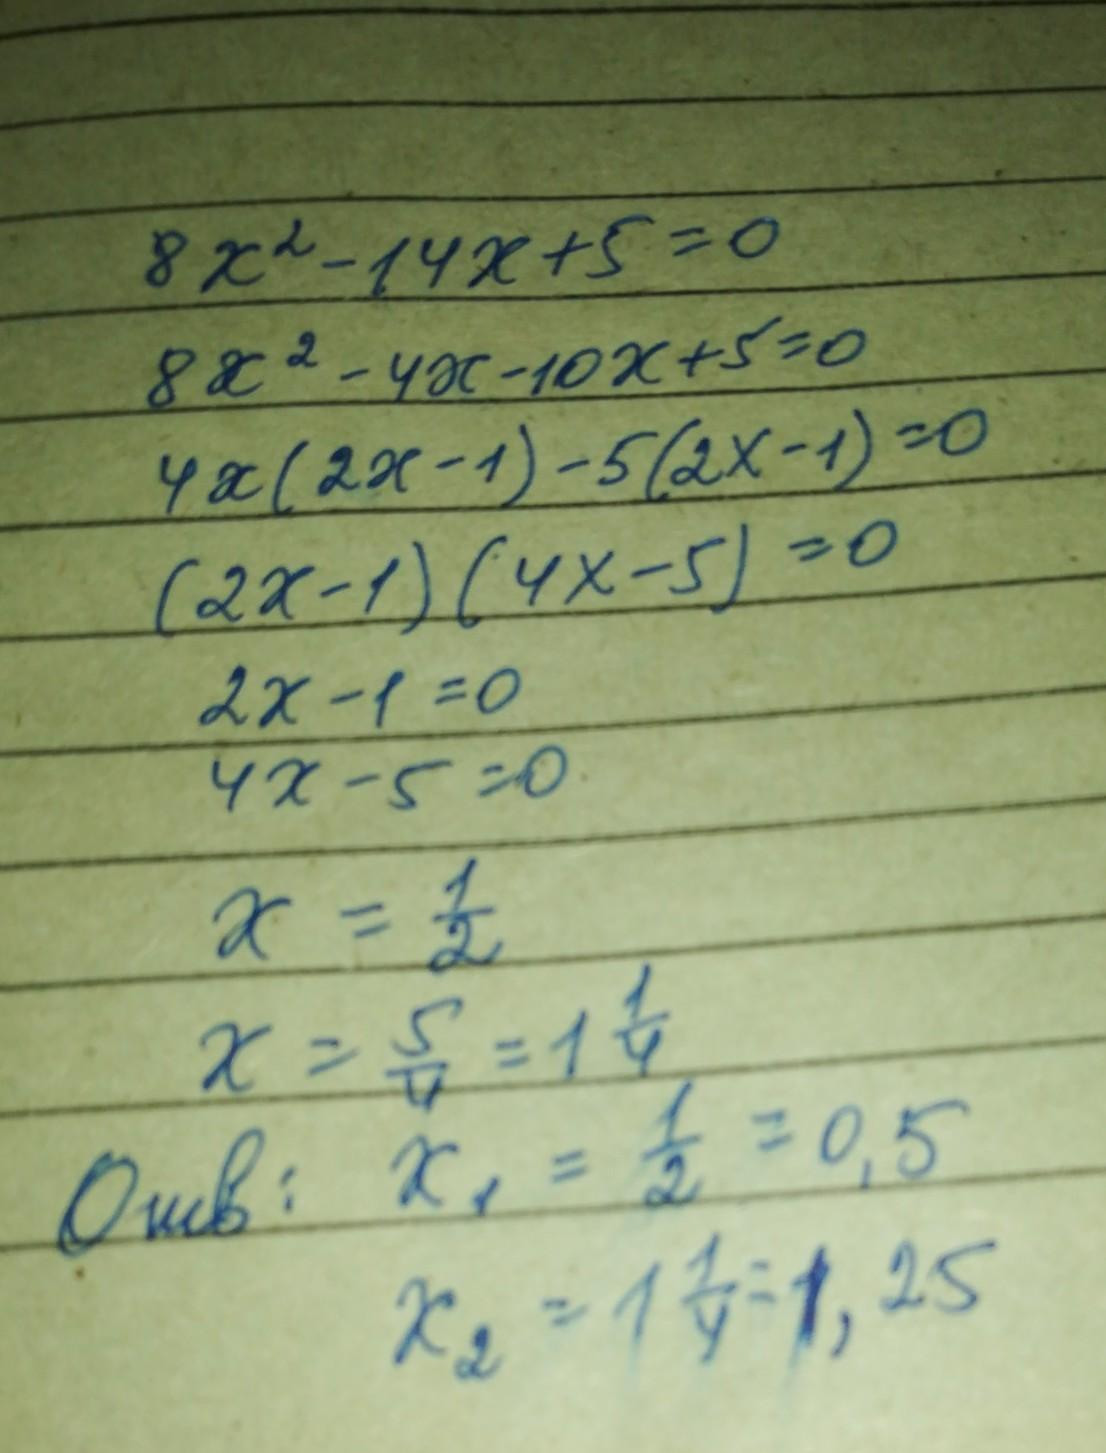 8x² - 14x + 5 = 0
8x² - 4x - 10x + 5 = 0
4x(2x - 1) - 5(2x - 1) = 0
(2x - 1)(4x - 5) = 0
2x - 1 = 0
4x - 5 = 0
x = 1/2
x = 5/4 = 1 1/4
Отв: x₁ = 1/2 = 0,5
x₂ = 1 1/4 = 1,25